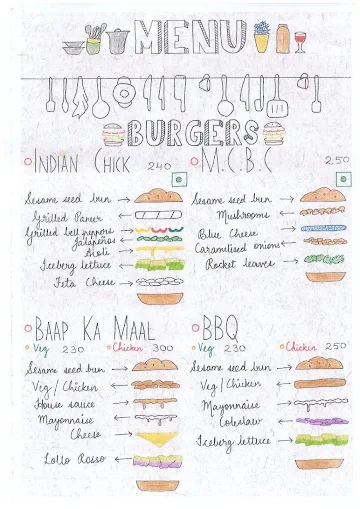 MENU
BURGERS
INDIAN CHICK 240
Sesame seed bun
Grilled Paneer
Grilled bell peppers
Jalapeños
Aioli
Iceberg lettuce
Feta Cheese
M.C.B.C 250
Sesame seed bun
Mushrooms
Blue Cheese
Caramelised onions
Rocket leaves
BAAP KA MAAL
Veg 230 Chicken 300
Sesame seed bun
Veg/Chicken
House sauce
Mayonnaise
Cheese
Lollo Rosso
BBQ
Veg 230 Chicken 250
Sesame seed bun
Veg/Chicken
Mayonnaise
Coleslaw
Iceberg lettuce